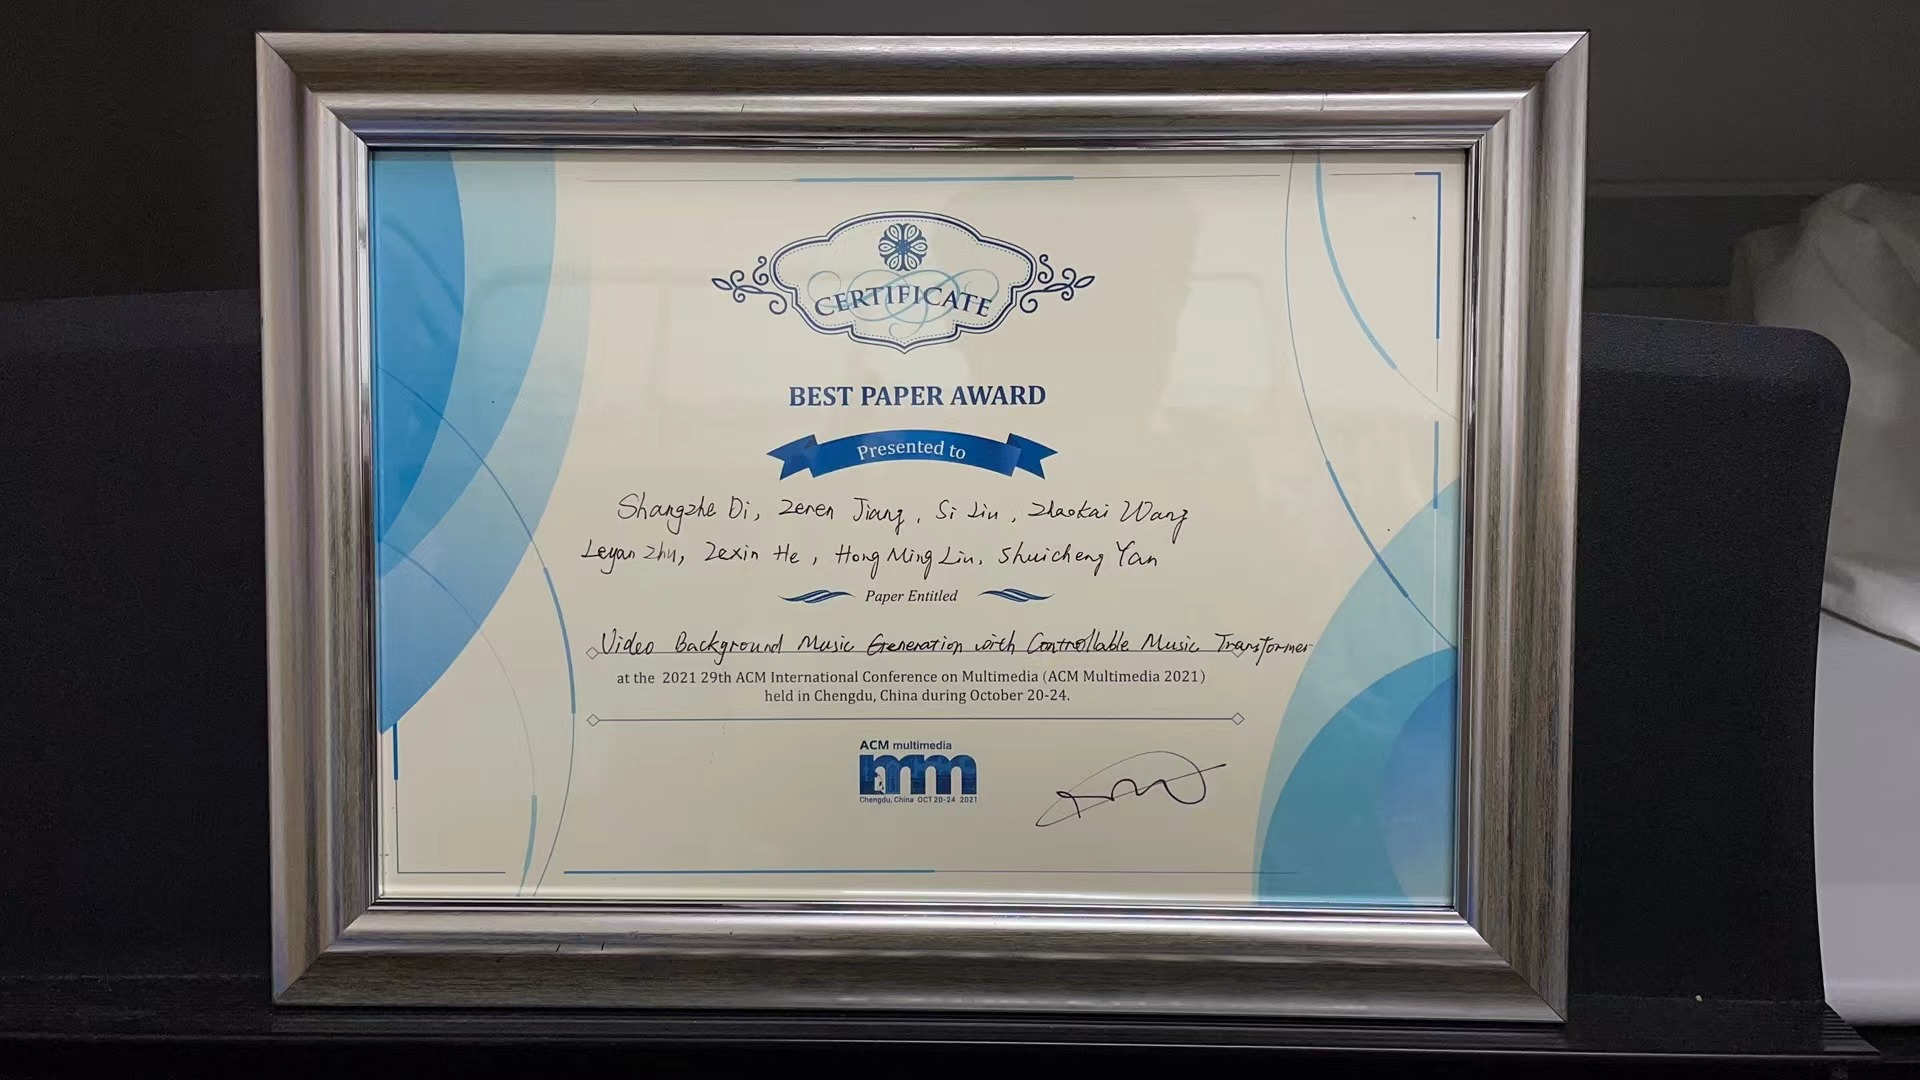 CERTIFICATE
BEST PAPER AWARD
Presented to
Shangzhe Di, Zeren Jiang, Si Liu, Zhaokai Wang
Leyan Zhu, Zexin He, Hong Ming Liu, Shuicheng Yan
Paper Entitled
Video Background Music Generation with Controllable Music Transformer
at the 2021 29th ACM International Conference on Multimedia (ACM Multimedia 2021)
held in Chengdu, China during October 20-24.
ACM multimedia
mm
Chengdu, China OCT 20-24 2021